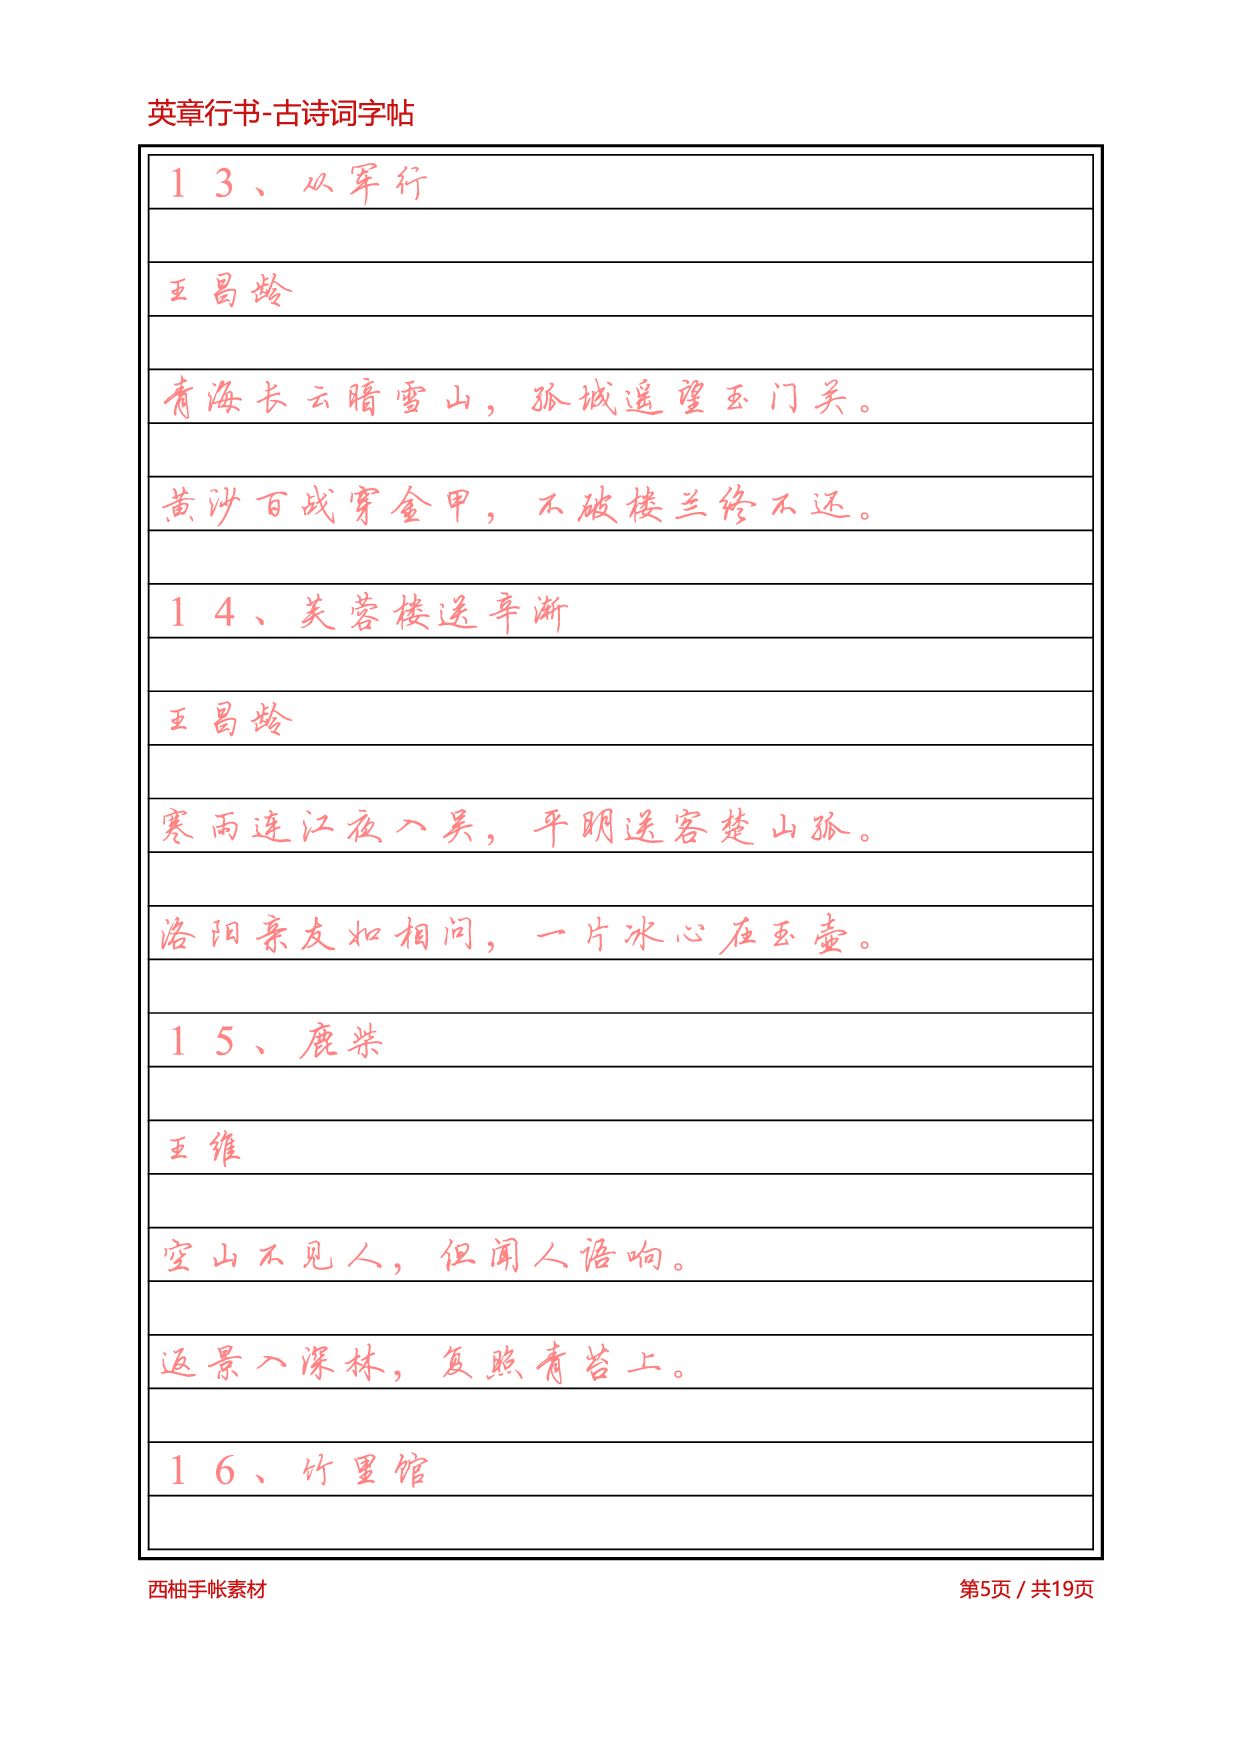 英章行书-古诗词字帖
13、从军行
王昌龄
青海长云暗雪山，孤城遥望玉门关。
黄沙百战穿金甲，不破楼兰终不还。
14、芙蓉楼送辛渐
王昌龄
寒雨连江夜入吴，平明送客楚山孤。
洛阳亲友如相问，一片冰心在玉壶。
15、鹿柴
王维
空山不见人，但闻人语响。
返景入深林，复照青苔上。
16、竹里馆
西柚手帐素材
第5页 / 共19页